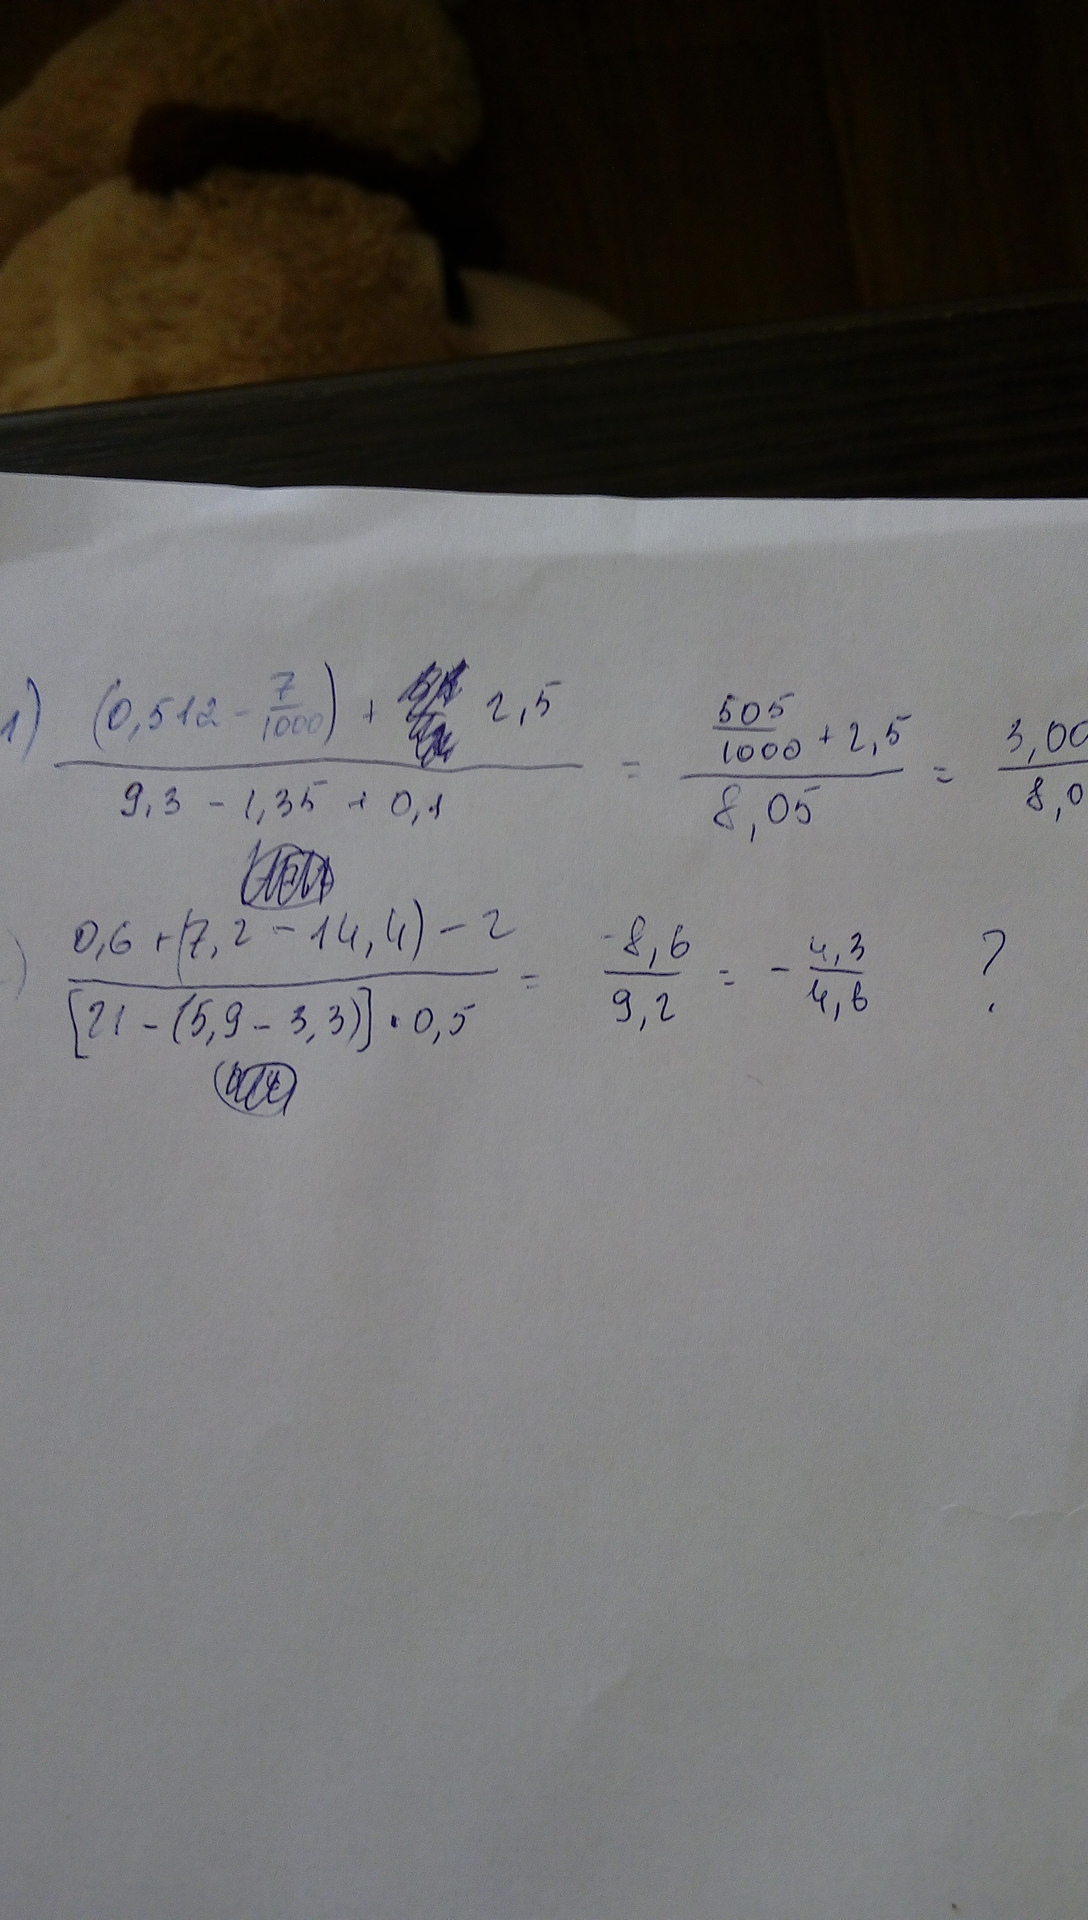 1) (0,512 - 7/1000) + 2,5 / 9,3 - 1,35 + 0,1 = 505/1000 + 2,5 / 8,05 = 3,00 / 8,0
) 0,6 + (7,2 - 14,4) - 2 / [21 - (5,9 - 3,3)] · 0,5 = -8,6 / 9,2 = - 4,3 / 4,6 ?